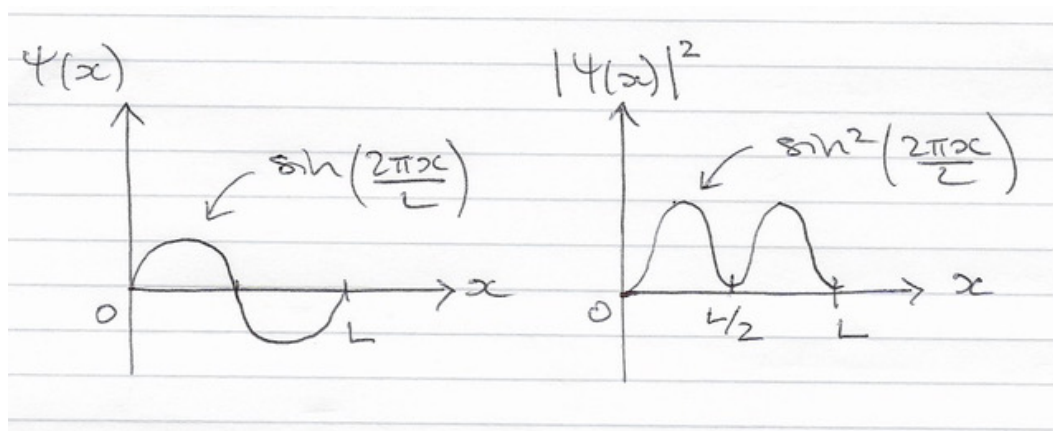 Ψ(x)
sin(2πx/L)
x
0
L
|Ψ(x)|²
sin²(2πx/L)
x
0
L/2
L